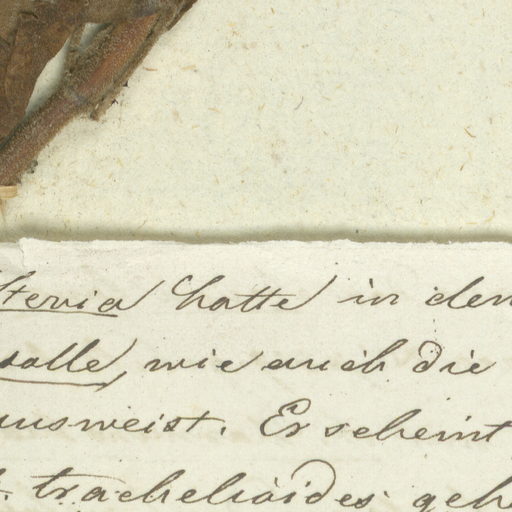 Stevia hatte in den
salle, wie auch die
ausweist. Er scheint
trachelioides geh